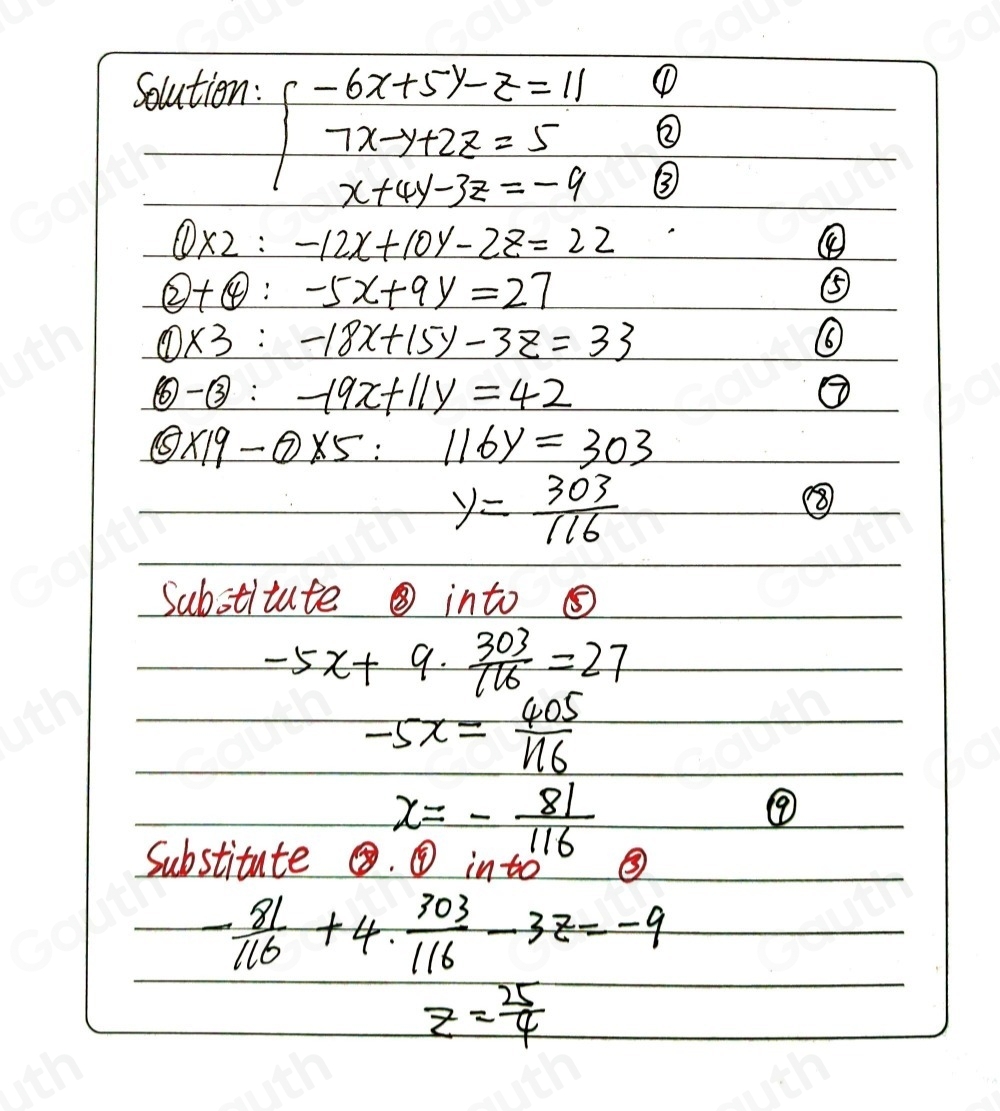 Solution: { -6x+5y-z=11 ①
7x-y+2z=5 ②
x+4y-3z=-9 ③
①×2: -12x+10y-2z=22 ④
②+④: -5x+9y=27 ⑤
①×3: -18x+15y-3z=33 ⑥
⑥-③: -19x+11y=42 ⑦
⑤×19-⑦×5: 116y=303
y=303/116 ⑧
Substitute ⑧ into ⑤
-5x+9·303/116=27
-5x=405/116
x=-81/116 ⑨
Substitute ⑧.⑨ into ③
-81/116+4·303/116-3z=-9
z=25/4